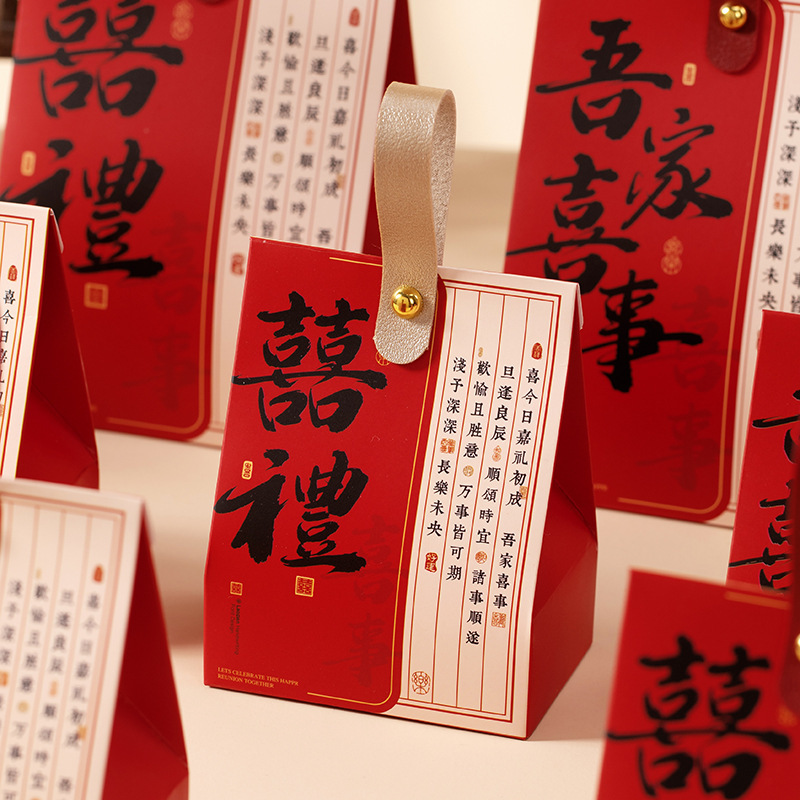 囍禮
喜今日嘉礼初成 吾
旦逢良辰 順頌時宜
歡愉且胜意 万事皆
淺予深深 長樂未央
吾家喜事
喜事
淺予深深 長樂未央
喜今日嘉礼初
囍禮
喜事
喜今日嘉礼初成 吾家喜事
旦逢良辰 順頌時宜 諸事順遂
歡愉且胜意 万事皆可期
淺予深深 長樂未央
好運
LETS CELEBRATE THIS HAPPY
REUNION TOGETHER
喜今日嘉礼初成
旦逢良辰 順頌時宜
歡愉且胜意 万事皆可
淺予深深 長樂
囍